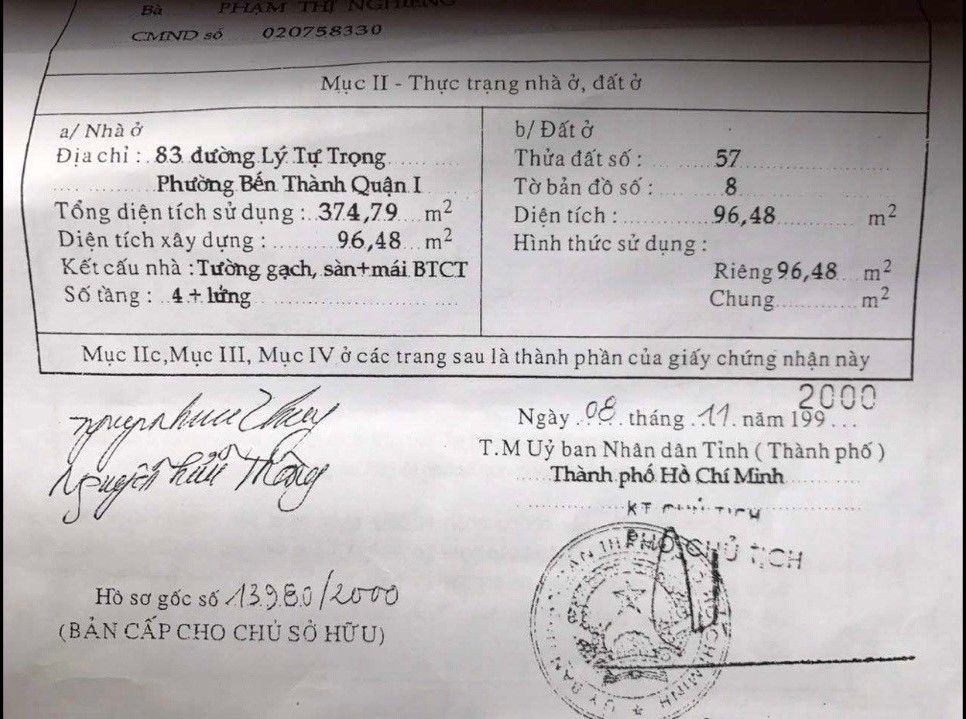 Bà PHẠM THỊ NGHIÊNG
CMND số 020758330
Mục II - Thực trạng nhà ở, đất ở
a/ Nhà ở
Địa chỉ : 83 đường Lý Tự Trọng
Phường Bến Thành Quận I
Tổng diện tích sử dụng : 374,79 m²
Diện tích xây dựng : 96,48 m²
Kết cấu nhà : Tường gạch, sàn+mái BTCT
Số tầng : 4 + lửng
b/ Đất ở
Thửa đất số : 57
Tờ bản đồ số : 8
Diện tích : 96,48 m²
Hình thức sử dụng :
Riêng 96,48 m²
Chung m²
Mục IIc,Mục III, Mục IV ở các trang sau là thành phần của giấy chứng nhận này
Ngày 08 tháng 11 năm 199 2000
T.M Uỷ ban Nhân dân Tỉnh ( Thành phố )
Thành phố Hồ Chí Minh
KT CHỦ TỊCH
PHÓ CHỦ TỊCH
Nguyễn Hữu Thông
Hồ sơ gốc số 13980/2000
(BẢN CẤP CHO CHỦ SỞ HỮU)